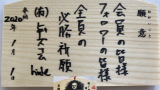 願意
会員の皆様
フォロワーの皆様
全員の
必勝祈願
(有)
hide
2020年1月1日